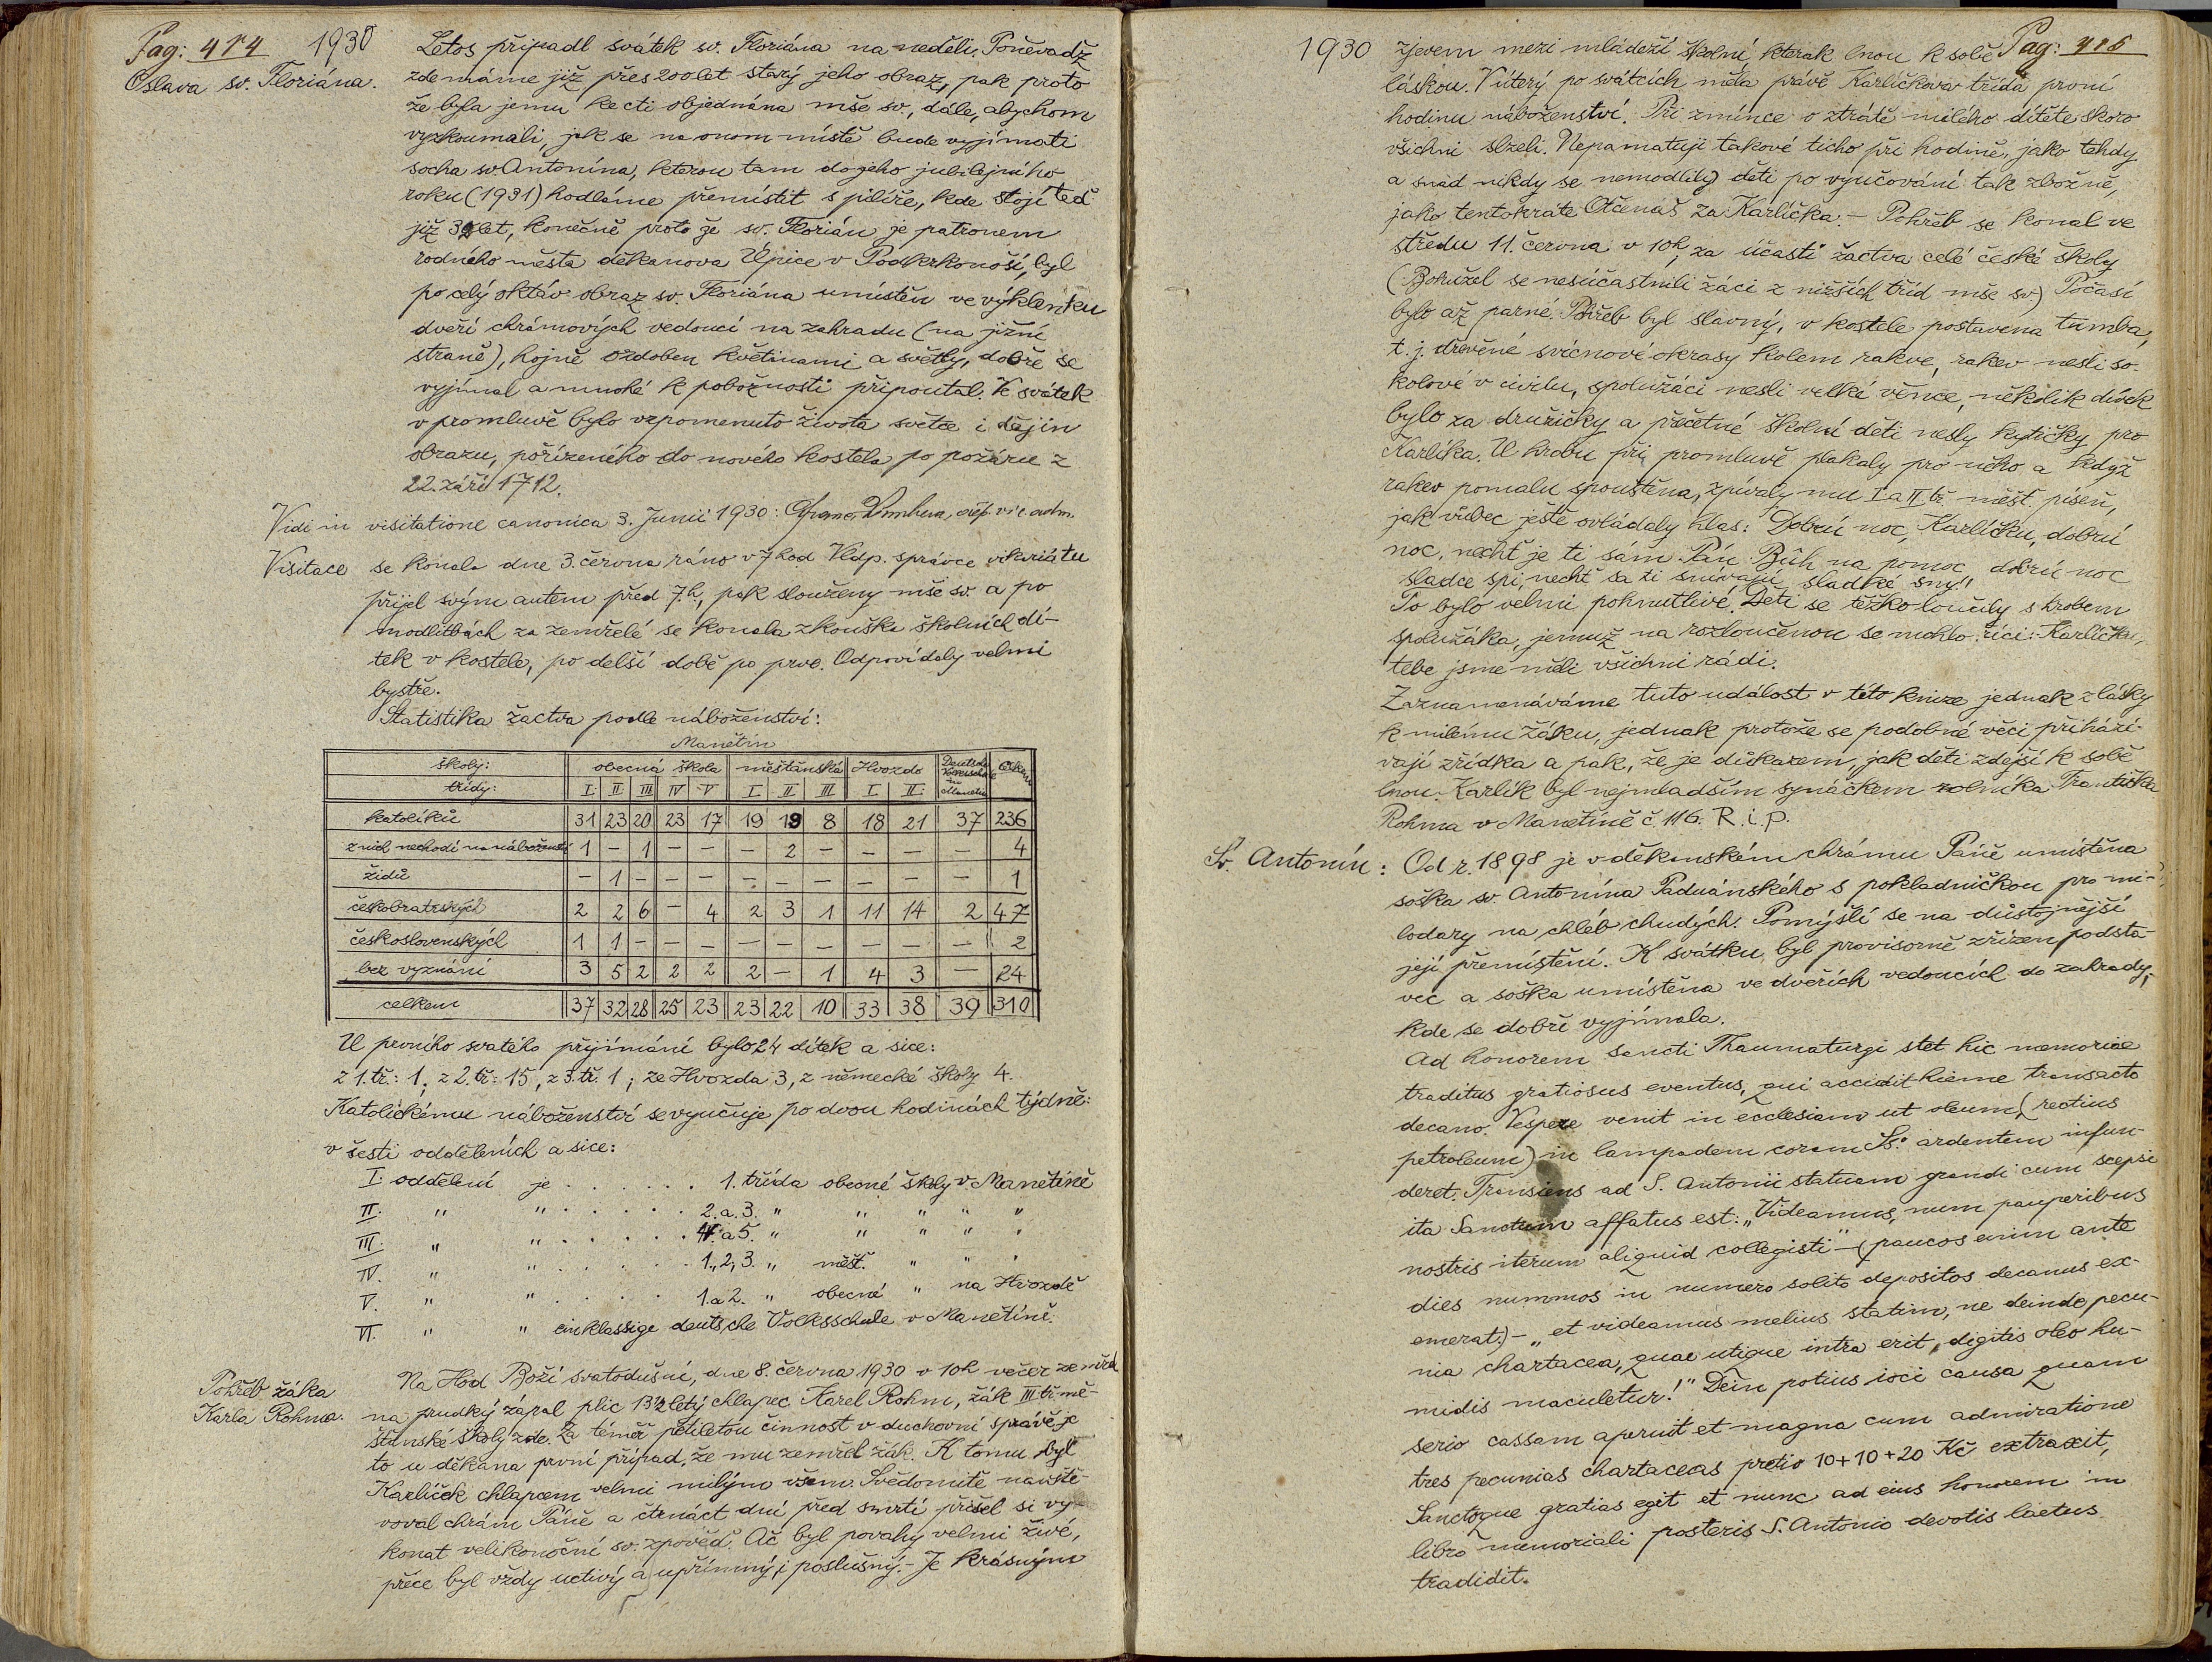 Pag: 414 1930
Oslava sv. Floriána.
Letos připadl svátek sv. Floriána na neděli. Poněvadž
zde máme již přes 200 let starý jeho obraz, pak proto
že byla jemu ke cti objednána mše sv., dále, abychom
vyzkoumali, jak se na onom místě bude vyjímati
socha sv. Antonína, kterou tam do jeho jubilejního
roku (1931) hodláme přemístit s pilíře, kde stojí teď
již 32 let, konečně proto že sv. Florián je patronem
rodného města děkanova Úpice v Podkrkonoší, byl
po celý oktáv obraz sv. Floriána umístěn ve výklenku
dveří chrámových vedoucí na zahradu (na jižní
straně), hojně ozdoben květinami a světly, dobře se
vyjímal a mnohé k pobožnosti připoutal. V svátek
v promluvě bylo vzpomenuto života světce i dějin
obrazu, pořízeného do nového kostela po požáru z
22. září 1712.
Vidi in visitatione canonica 3. Junii 1930: vic. adm.
Visitace se konala dne 3. června ráno v 7 hod Vldp. správce vikariátu
přijel svým autem před 7.h, pak slouženy mše sv. a po
modlitbách za zemřelé se konala zkouška školních dí-
tek v kostele, po delší době po prvé. Odpovídaly velmi
bystře.
Statistika žactva podle náboženství:
Manětín
školy: obecná škola měšťanská Hvozdo Deutsche Volksschule in Manetin Celkem
třídy: I. II. III IV V I II III I. II.
katolíků 31 23 20 23 17 19 19 8 18 21 37 236
z nich nechodí na náboženství 1 – 1 – – – 2 – – – – 4
židů – 1 – – – – – – – – – 1
českobratrských 2 2 6 – 4 2 3 1 11 14 2 47
československých 1 1 – – – – – – – – – 2
bez vyznání 3 5 2 2 2 2 – 1 4 3 – 24
celkem 37 32 28 25 23 23 22 10 33 38 39 310
U prvního svatého přijímání bylo 24 dítek a sice:
z 1. tř.: 1, z 2. tř: 15, z 3. tř. 1; ze Hvozda 3, z německé školy 4.
Katolickému náboženství se vyučuje po dvou hodinách týdně:
v šesti odděleních a sice:
I. oddělení je . . . . . . 1. třída obecné školy v Manětíně
II. " " . . . . . 2. a 3. " " " " "
III. " " . . . . . 4. a 5. " " " " "
IV. " " . . . . . 1., 2, 3. " měšť. " " "
V. " " . . . . 1. a 2. " obecné " na Hvozdě
VI. " " einklassige deutsche Volksschule v Manětíně.
Pohřeb žáka
Karla Rohma.
Na Hod Boží svatodušní, dne 8. června 1930 v 10h večer zemřel
na prudký zápal plic 13½letý chlapec Karel Rohm, žák III tř. mě-
šťanské školy zde. Za téměř pětiletou činnost v duchovní správě je
to u děkana první případ, že mu zemřel žák. K tomu byl
Karlíček chlapcem velmi milým všem. Svědomitě navště-
voval chrám Páně a čtrnáct dní před smrtí přišel si vy-
konat velikonoční sv. zpověď. Ač byl povahy velmi živé,
přece byl vždy uctivý a upřímný i poslušný. – Je krásným
1930 Pag: 415
zjevem mezi mládeží školní, kterak lnou k sobě
láskou. V úterý po svátcích měla právě Karlíčkova třída první
hodinu náboženství. Při zmínce o ztrátě milého dítěte skoro
všichni slzeli. Nepamatuji takové ticho při hodině, jako tehdy
a snad nikdy se nemodlily děti po vyučování tak zbožně,
jako tentokráte Otčenáš za Karlíčka. – Pohřeb se konal ve
středu 11. června v 10h, za účasti žactva celé české školy
(Bohužel se nesúčastnili žáci z nižších tříd mše sv.) Počasí
bylo až parné. Pohřeb byl slavný, v kostele postavena tumba,
t. j. dřevěné svícnové okrasy kolem rakve, rakev nesli so-
kolové v civilu, spolužáci nesli velké věnce, několik dívek
bylo za družičky a přečetné školní děti nesly kytičky pro
Karlíka. U hrobu při promluvě plakaly pro něho a když
rakev pomalu spouštěna, zpívaly mu I a II tř. měšť. píseň,
jak vůbec ještě ovládaly hlas: Dobrú noc, Karlíčku, dobrú
noc, nechť je ti sám Pán Bůh na pomoc, dobrú noc
sladce spi, nechť sa ti snívajú sladké sny!!
To bylo velmi pohnutlivé. Děti se těžko loučily s hrobem
spolužáka, jemuž na rozloučenou se mohlo říci: Karlíčku,
tebe jsme měli všichni rádi.
Zaznamenáváme tuto událost v této knize jednak z lásky
k milému žáku, jednak protože se podobné věci přiházi-
vají zřídka a pak, že je důkazem, jak děti zdejší k sobě
lnou. Karlík byl nejmladším synáčkem rolníka Františka
Rohma v Manětíně č. 116. R.i.p.
Sv. Antonín: Od r. 1898 je v děkanském chrámu Páně umístěna
soška sv. Antonína Paduánského s pokladničkou pro mi-
lodary na chléb chudých. Pomýšlí se na důstojnější
její přemístění. K svátku byl provisorně zřízen podsta-
vec a soška umístěna ve dveřích vedoucích do zahrady,
kde se dobře vyjímala.
Ad honorem Sancti Thaumaturgi stet hic memoriae
traditus gratiosus eventus, qui accidit hieme transacto
decano. Vespere venit in ecclesiam ut oleum (rectius
petroleum) in lampadem coram Ss. ardentem infun-
deret. Transiens ad S. Antonii statuam grandi cum scepsi
ita Sanctum affatus est: „Videamus, num pauperibus
nostris iterum aliquid collegisti" – (paucos enim ante
dies nummos in numero solito depositos decanus ex-
emerat.) – „et videamus melius statim, ne deinde pecu-
nia chartacea, quae utique intra erit, digitis oleo hu-
midis maculetur!" Dein potius ioci causa quam
serio cassam aperuit et magna cum admiratione
tres pecunias chartaceas pretio 10+10+20 Kč extraxit,
Sanctoque gratias egit et nunc ad eius honorem in
libro memoriali posteris S. Antonio devotis laetus
tradidit.